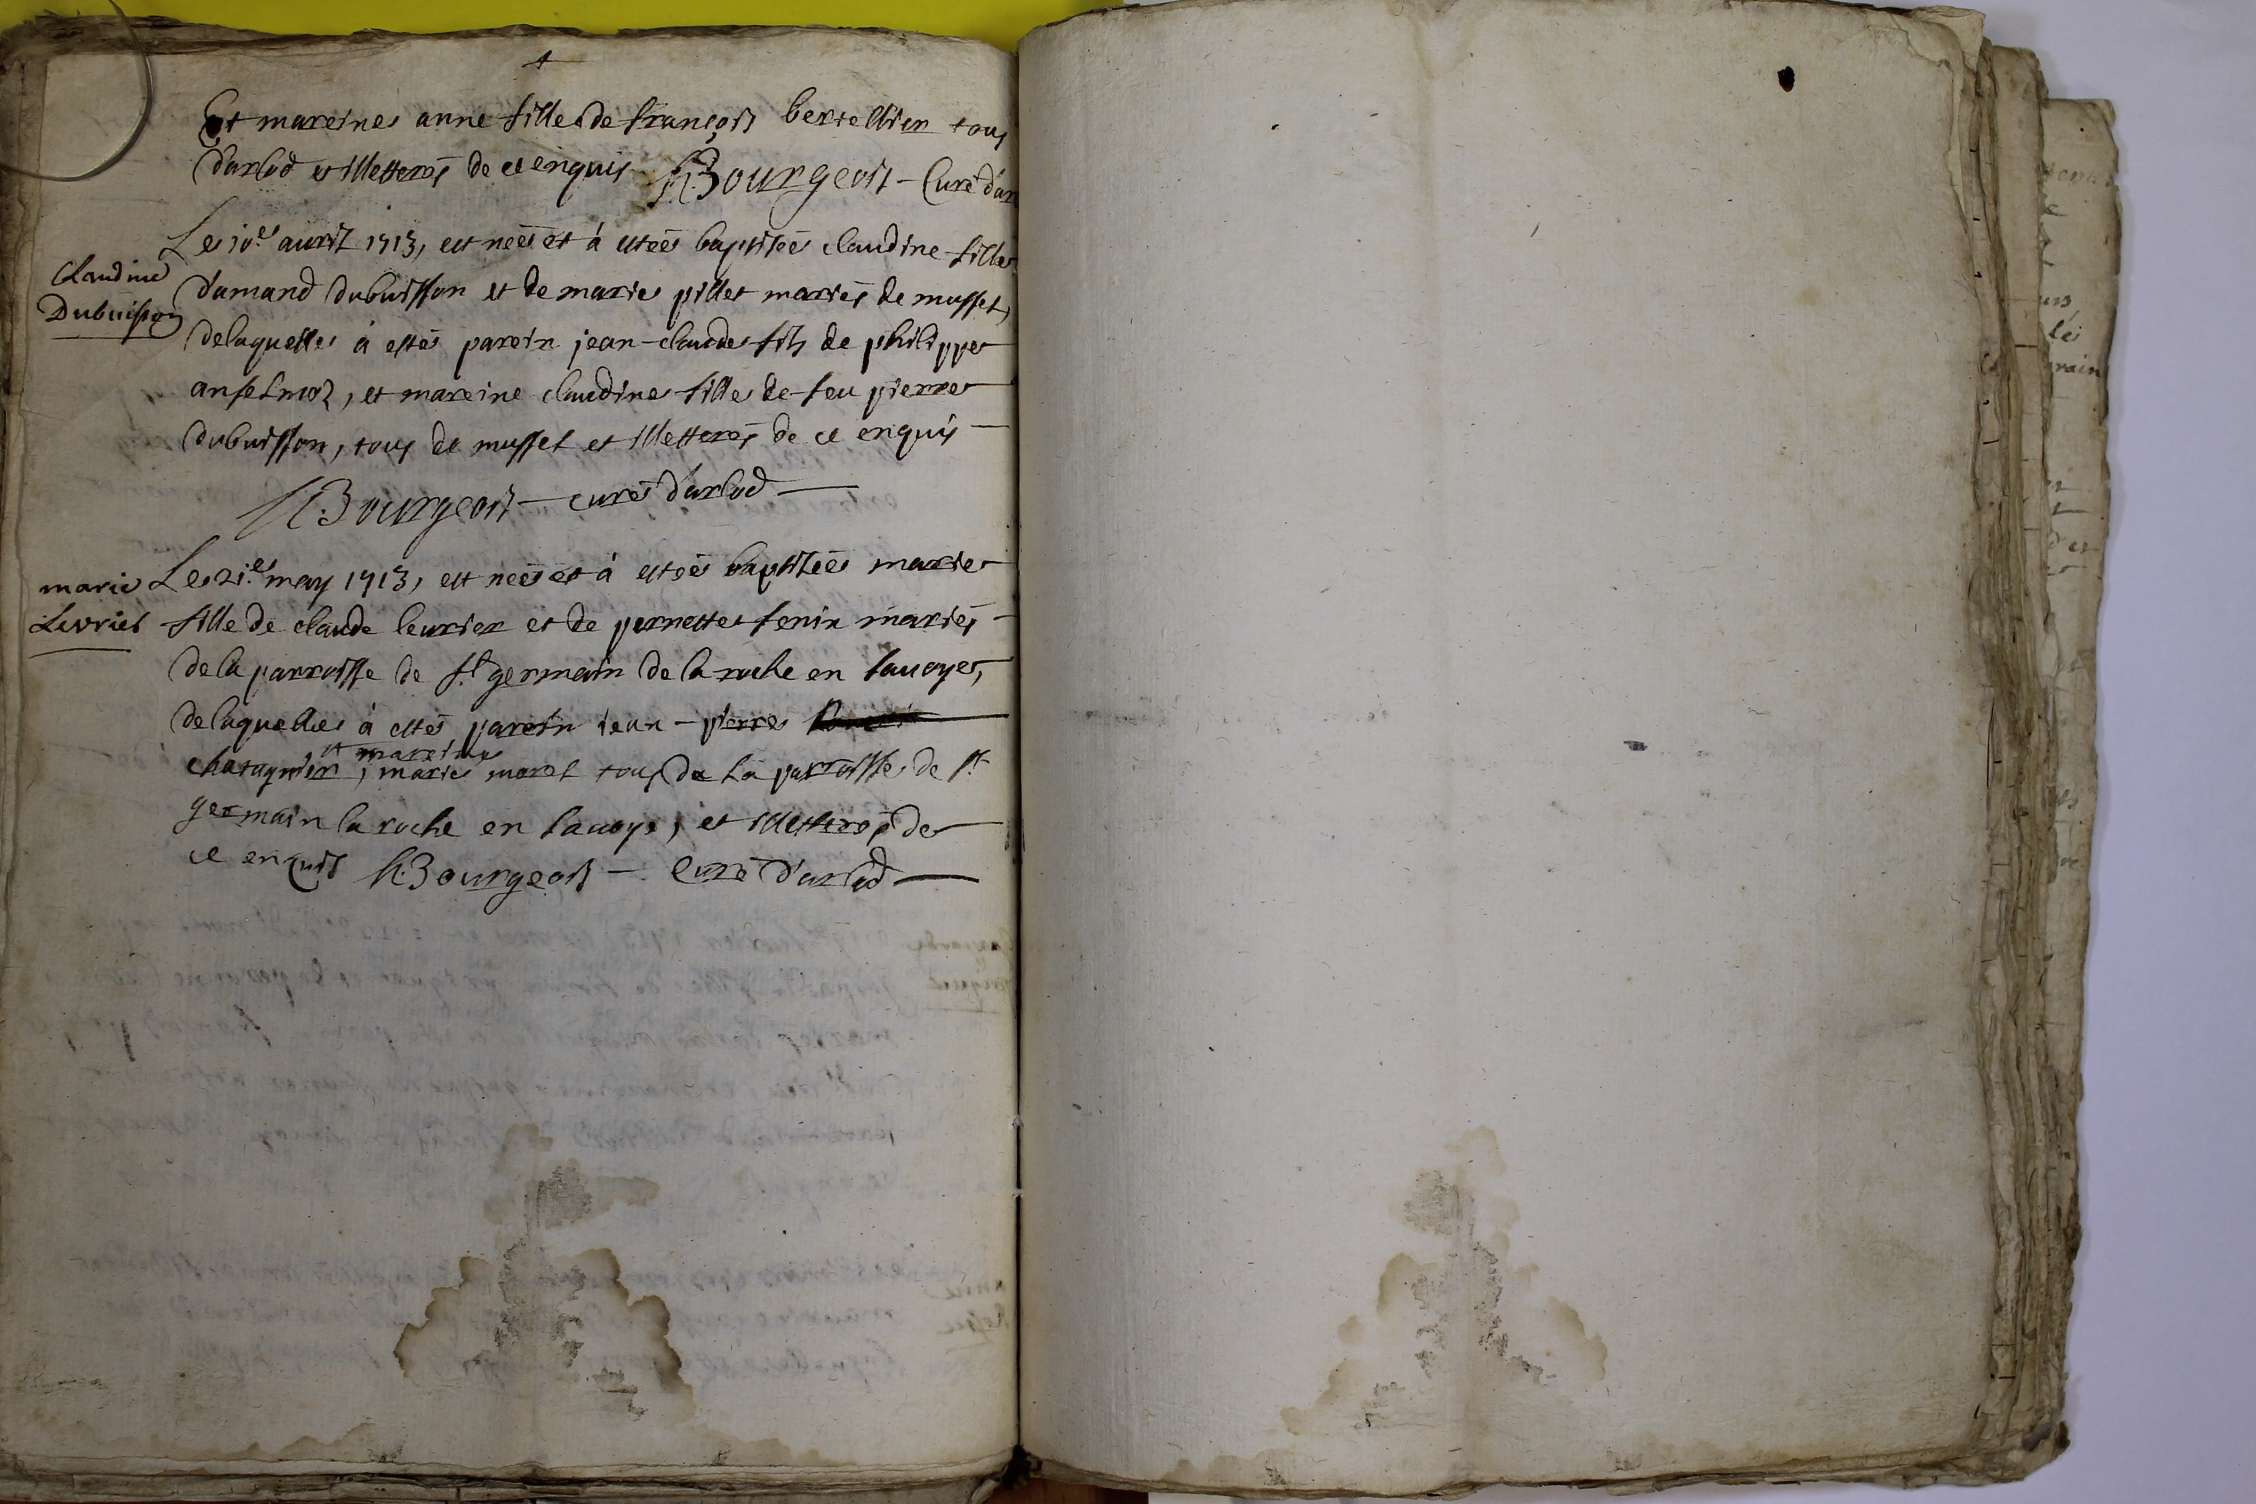 Et mareine anne fille de françois bertellier tous
d'arlod et illetteres de ce enquis h. Bourgeois - Curé d'ar
Le 10e avril 1713, est neeé et à esteé baptiseé claudine fille
Claudine
Dubuisson
d'amand dubuisson et de marie pillet mariés de mussel,
delaquelle à esté parein jean-claude fils de philippe
anselmoz, et mareine claudine fille de feu pierre
dubuisson, tous de mussel et illetteres de ce enquis
h. Bourgeois - curé d'arlod
marie
Levrier
Le 21e may 1713, est neeé et à esteé baptiseé marie
fille de claude leurier et de pernette fenix mariés
de la parroisse de st germain de la roche en sauoye,
delaquelle à esté parein jean-pierre
chatagnier, et mareine marie morel tous de la parroisse de st
germain la roche en sauoye, et illetteres de
ce enquis h. Bourgeois - Curé d'arlod